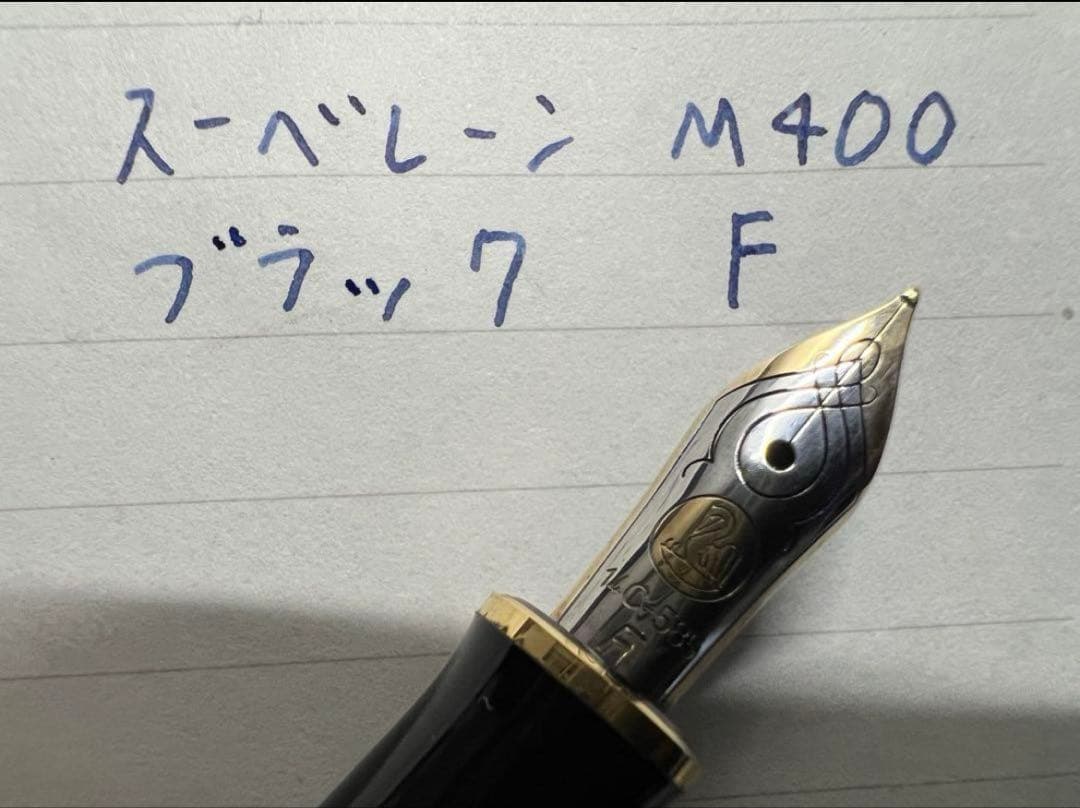 スーベレーン M400
ブラック F
14C-585
F